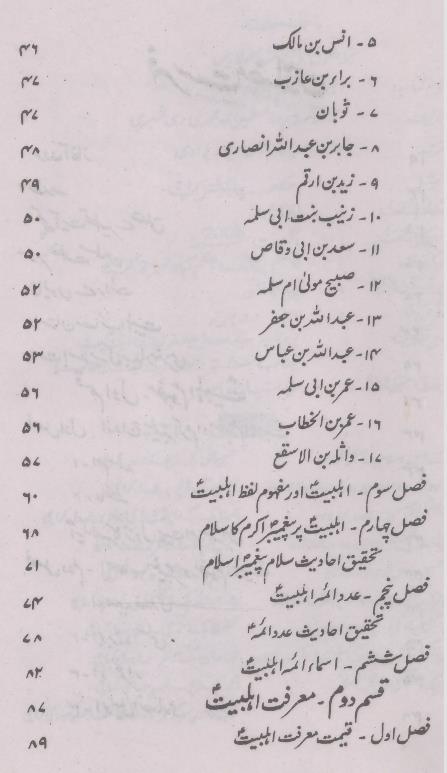 ۵ - انس بن مالک ۴۶
۶ - براء بن عازب ۴۷
۷ - ثوبان ۴۷
۸ - جابر بن عبد اللہ انصاری ۴۸
۹ - زید بن ارقم ۴۹
۱۰ - زینب بنت ابی سلمہ ۵۰
۱۱ - سعد بن ابی وقاص ۵۰
۱۲ - صبیح مولیٰ ام سلمہ ۵۲
۱۳ - عبد اللہ بن جعفر ۵۲
۱۴ - عبد اللہ بن عباس ۵۳
۱۵ - عمر بن ابی سلمہ ۵۶
۱۶ - عمر بن الخطاب ۵۶
۱۷ - واثلہ بن الاسقع ۵۷
فصل سوم - اہلبیتؑ اور مفہوم لفظ اہلبیتؑ ۶۰
فصل چہارم - اہلبیتؑ پر پیغمبرؐ اکرم کا سلام ۶۸
تحقیق احادیث سلام پیغمبرؐ اسلام ۷۱
فصل پنجم - عدد ائمہ اہلبیتؑ ۷۴
تحقیق احادیث عدد ائمہؑ ۷۸
فصل ششم - اسماء ائمہ اہلبیتؑ ۸۲
قسم دوم - معرفت اہلبیتؑ ۸۷
فصل اول - قیمت معرفت اہلبیتؑ ۸۹